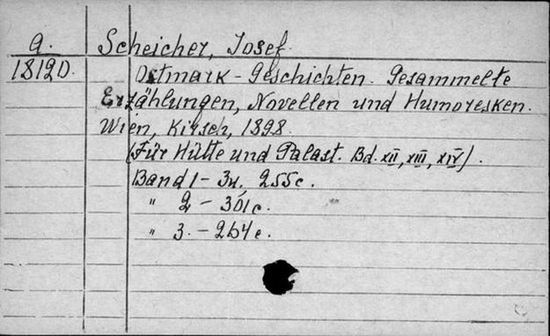 a. Scheicher, Josef.
18120. Ostmark-Geschichten. Gesammelte
Erzählungen, Novellen und Humoresken.
Wien, Kirsch, 1898.
(Für Hütte und Palast. Bd. XII, XIII, XIV).
Band 1 - 255c.
" 2 - 301c.
" 3. - 264c.